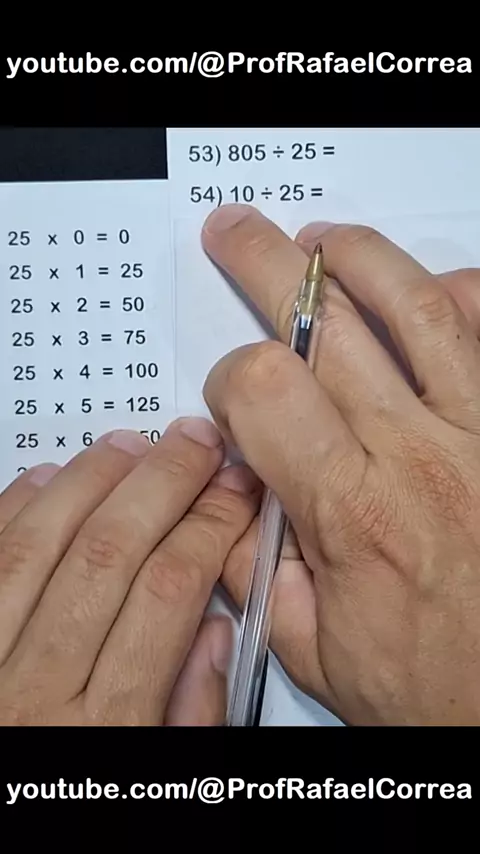 youtube.com/@ProfRafaelCorrea
53) 805 ÷ 25 =
54) 10 ÷ 25 =
25 x 0 = 0
25 x 1 = 25
25 x 2 = 50
25 x 3 = 75
25 x 4 = 100
25 x 5 = 125
25 x 6 50
youtube.com/@ProfRafaelCorrea